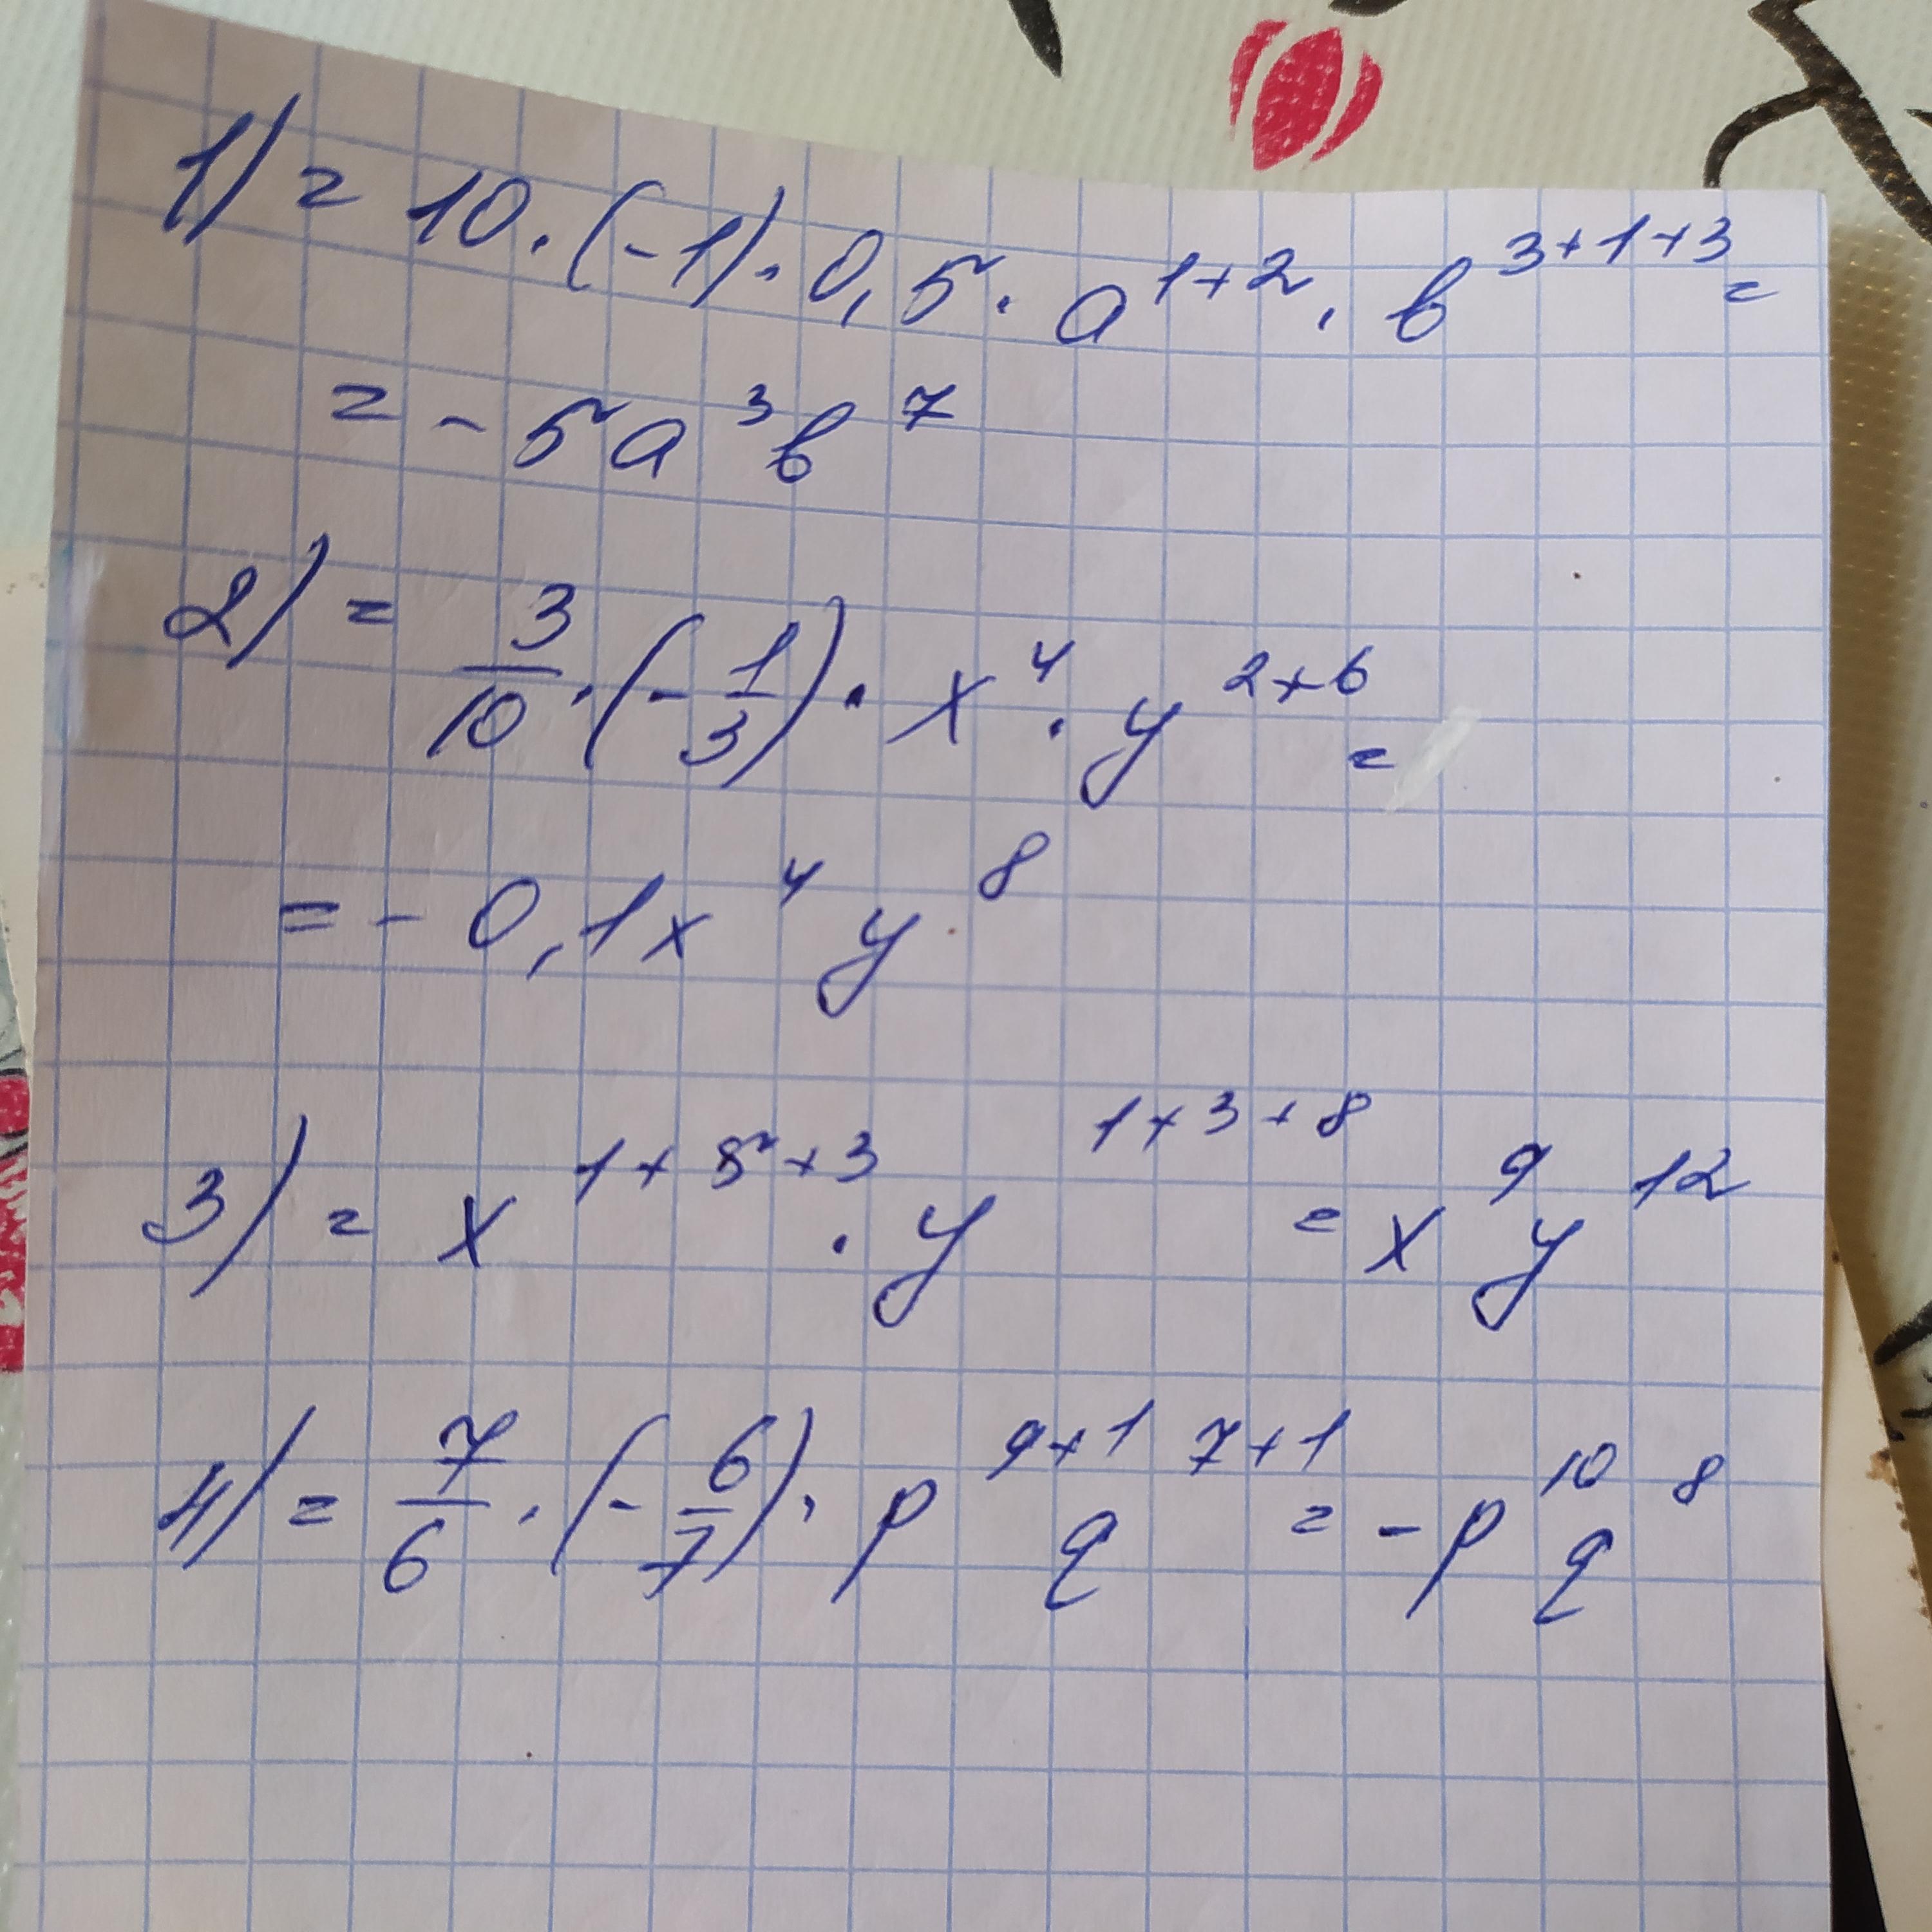 1) = 10 · (-1) · 0,5 · a^{1+2} · b^{3+1+3} =
= - 5a^3 b^7
2) = \frac{3}{10} · (-\frac{1}{3}) · x^4 · y^{2+6} =
= - 0,1x^4 y^8
3) = x^{1+5+3} · y^{1+3+8} = x^9 y^{12}
4) = \frac{7}{6} · (-\frac{6}{7}) · p^{9+1} q^{7+1} = -p^{10} q^8